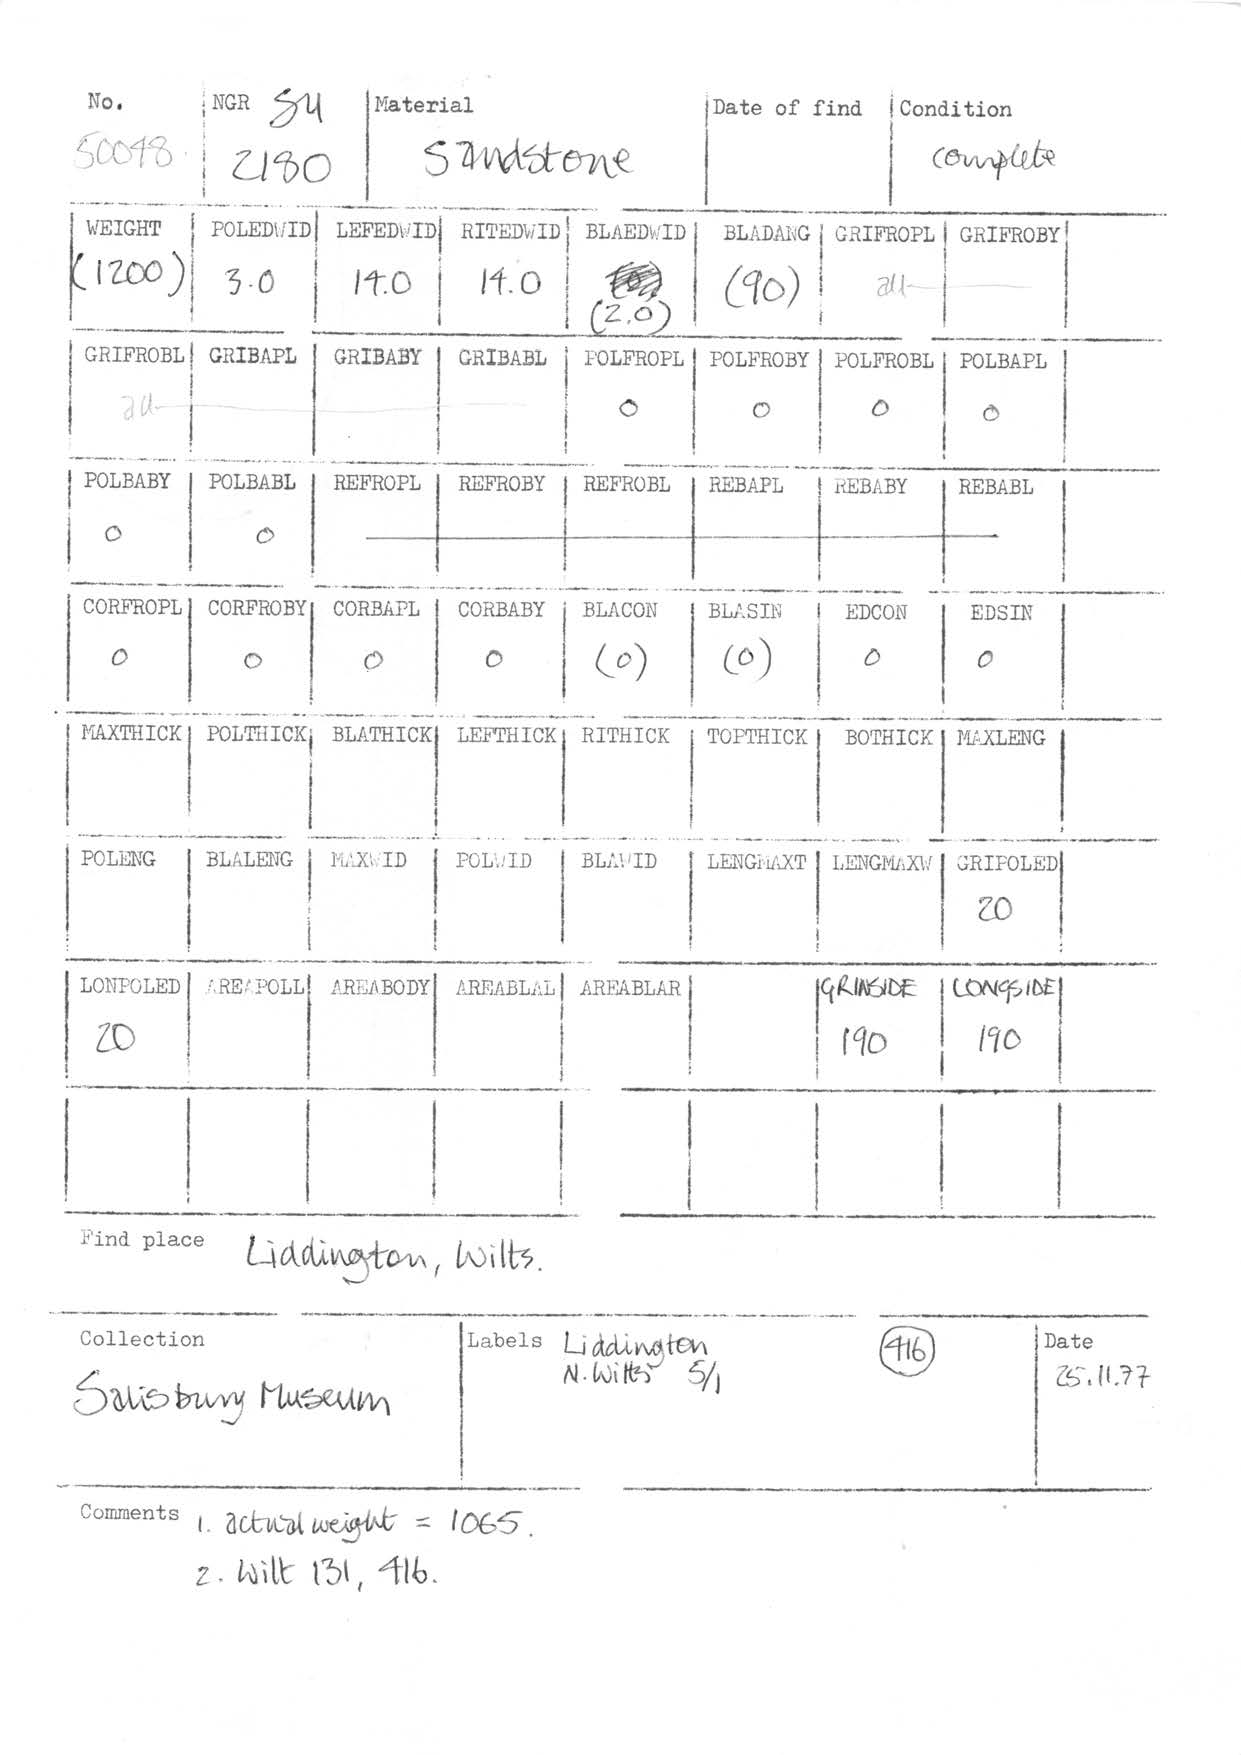 No. NGR SU Material Date of find Condition
50048 2180 Sandstone complete
WEIGHT POLEDWID LEFEDWID RITEDWID BLAEDWID BLADANG GRIFROPL GRIFROBY
(1200) 3.0 14.0 14.0 (2.0) (90) all
GRIFROBL GRIBAPL GRIBABY GRIBABL POLFROPL POLFROBY POLFROBL POLBAPL
all 0 0 0 0
POLBABY POLBABL REFROPL REFROBY REFROBL REBAPL REBABY REBABL
0 0
CORFROPL CORFROBY CORBAPL CORBABY BLACON BLASIN EDCON EDSIN
0 0 0 0 (0) (0) 0 0
MAXTHICK POLTHICK BLATHICK LEFTHICK RITHICK TOPTHICK BOTHICK MAXLENG
POLENG BLALENG MAXWID POLWID BLAWID LENGMAXT LENGMAXW GRIPOLED
20
LONPOLED AREAPOLL AREABODY AREABLAL AREABLAR GRINSIDE LONGSIDE
20 190 190
Find place Liddington, Wilts.
Collection Labels Liddington 416 Date
N. Wilts 5/1 25.11.77
Salisbury Museum
Comments 1. actual weight = 1065.
2. Wilt 131, 416.